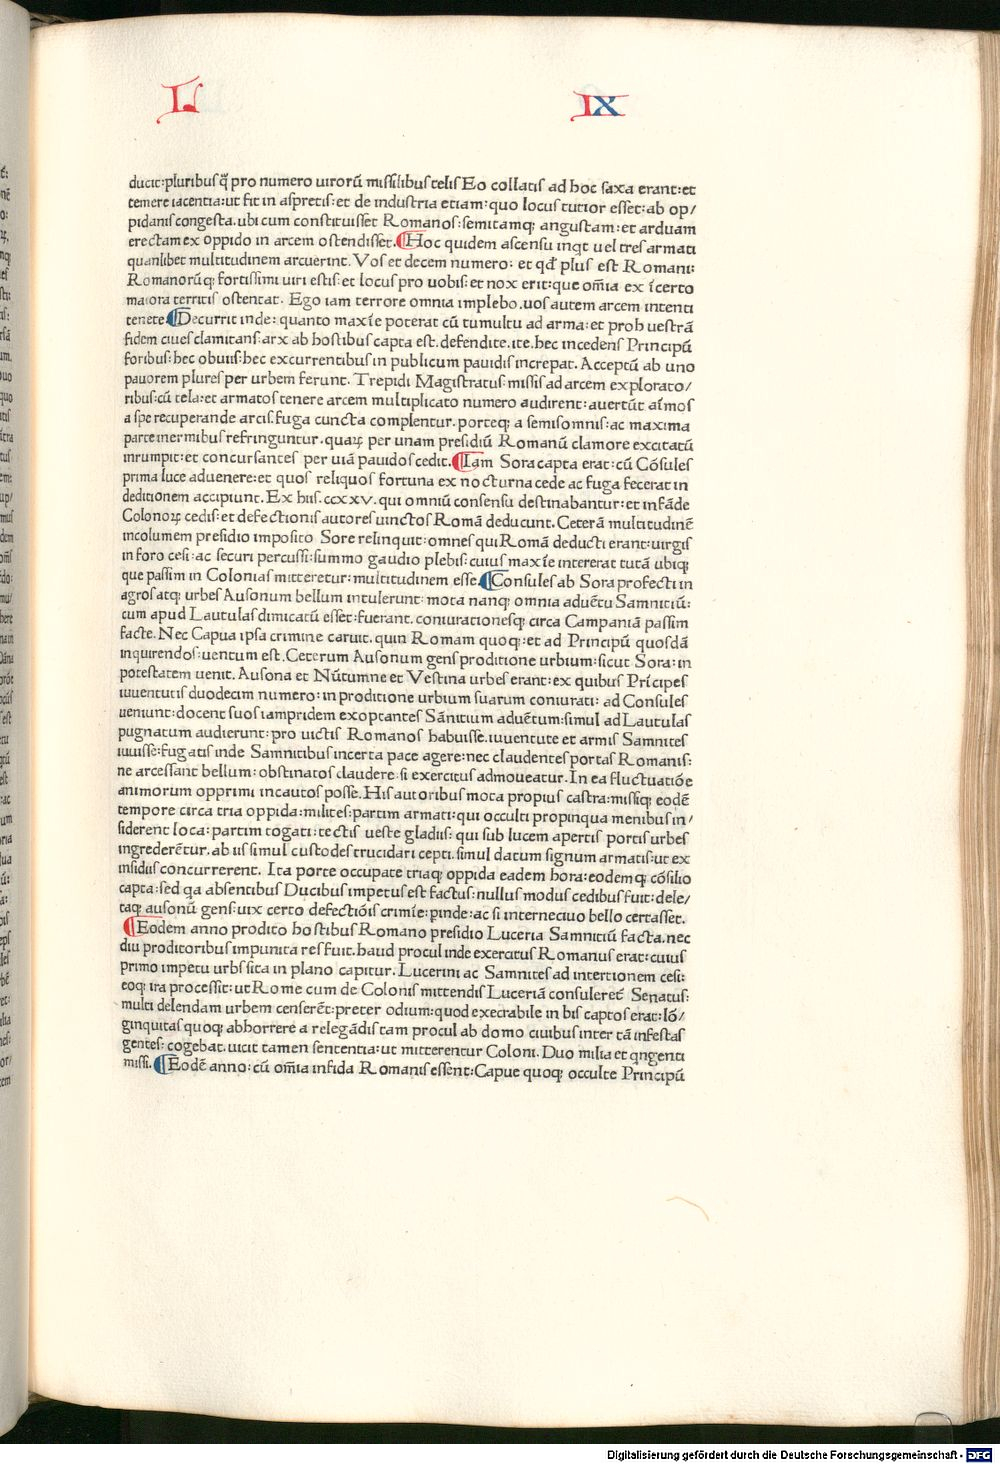 L IX
ducit:pluribus q̃ pro numero uirorũ missilibus telis Eo collatis ad hoc saxa erant:et
temere iacentia:ut fit in aspretis:et de industria etiam:quo locus tutior esset:ab op/
pidanis congesta.ubi cum constituisset Romanos:semitamqꝫ angustam:et arduam
erectam ex oppido in arcem ostendisset.¶Hoc quidem ascensu inqt uel tres armati
quanlibet multitudinem arcuerint.Vos et decem numero: et qđ plus est Romani:
Romanorũqꝫ fortissimi uiri estis:et locus pro uobis:et nox erit:que om̃ia ex ĩcerto
maiora territis ostentat. Ego iam terrore omnia implebo.uos autem arcem intenti
tenete.¶Decurrit inde: quanto maxĩe poterat cũ tumultu ad arma:et proh uestrã
fidem ciues clamitans:arx ab hostibus capta est.defendite.ite.hec incedens Principũ
foribus:hec obuiis:hec excurrentibus in publicum pauidis increpat. Acceptũ ab uno
pauorem plures per urbem ferunt. Trepidi Magistratus:missis ad arcem explorato/
ribus:cũ tela:et armatos tenere arcem multiplicato numero audirent:auertũt aĩmos
a spe recuperande arcis.fuga cuncta complentur.porteqꝫ a semisomnis:ac maxima
parte inermibus refringuntur.quaꝝ per unam presidiũ Romanũ clamore excitatũ
inrumpit:et concursantes per uiã pauidos cedit.¶Iam Sora capta erat:cũ Cõsules
prima luce aduenere:et quos reliquos fortuna ex nocturna cede ac fuga fecerat in
deditionem accipiunt. Ex hiis.ccxxv. qui omniũ consensu destinabantur:et infãde
Colonoꝝ cedis:et defectionis autores uinctos Romã deducunt. Ceterã multitudinẽ
incolumem presidio imposito Sore relinquit:omnes qui Romã deducti erant:uirgis
in foro cesi:ac securi percussi:summo gaudio plebis:cuius maxĩe intererat tutã ubiqꝫ
que passim in Colonias mitteretur:multitudinem esse.¶Consules ab Sora profecti in
agros atqꝫ urbes Ausonum bellum intulerunt: mota nanqꝫ omnia aduẽtu Samnitiũ:
cum apud Lautulas dimicatũ esset:fuerant.coniurationesqꝫ circa Campaniã passim
facte. Nec Capua ipsa crimine caruit.quin Romam quoqꝫ:et ad Principũ quosdã
inquirendos:uentum est.Ceterum Ausonum gens proditione urbium:sicut Sora:in
potestatem uenit. Ausona et Nũtumne et Vestina urbes erant:ex quibus Prĩcipes
iuuentutis duodecim numero:in proditione urbium suarum coniurati: ad Consules
ueniunt:docent suos iampridem exoptantes Sãnitium aduẽtum:simul ad Lautulas
pugnatum audierunt:pro uictis Romanos habuisse.iuuentute et armis Samnites
iuuisse:fugatis inde Samnitibus incerta pace agere:nec claudentes portas Romanis:
ne arcessant bellum:obstinatos claudere:si exercitus admoueatur.In ea fluctuatiõe
animorum opprimi incautos posse.His autoribus mota propius castra:missiqꝫ eodẽ
tempore circa tria oppida:milites:partim armati:qui occulti propinqua menibus in/
siderent loca:partim togati:tectis ueste gladiis: qui sub lucem apertis portis urbes
ingrederẽtur.ab iis simul custodes trucidari cepti.simul datum signum armatis:ut ex
insidiis concurrerent. Ita porte occupate triaqꝫ oppida eadem hora:eodemqꝫ cõsilio
capta:sed qa absentibus Ducibus impetus est factus:nullus modus cedibus fuit:dele/
taqꝫ ausonũ gens:uix certo defectiõis crimĩe:pinde:ac si interneciuo bello certasset.
¶Eodem anno prodito hostibus Romano presidio Luceria Samnitiũ facta.nec
diu proditoribus impunita res fuit.haud procul inde exercitus Romanus erat:cuius
primo impetu urbs sita in plano capitur.Lucerini ac Samnites ad intertionem cesi:
eoqꝫ ira processit:ut Rome cum de Colonis mittendis Luceriã consuleret̃ Senatus:
multi delendam urbem censerẽt:preter odium:quod execrabile in bis captos erat:lõ/
ginquitas quoqꝫ abhorrere a relegãdis tam procul ab domo ciuibus inter tã infestas
gentes: cogebat.uicit tamen sententia:ut mitterentur Coloni.Duo milia et qngenti
missi.¶Eodẽ anno:cũ om̃ia infida Romanis essent:Capue quoqꝫ occulte Principũ
Digitalisierung gefördert durch die Deutsche Forschungsgemeinschaft - DFG